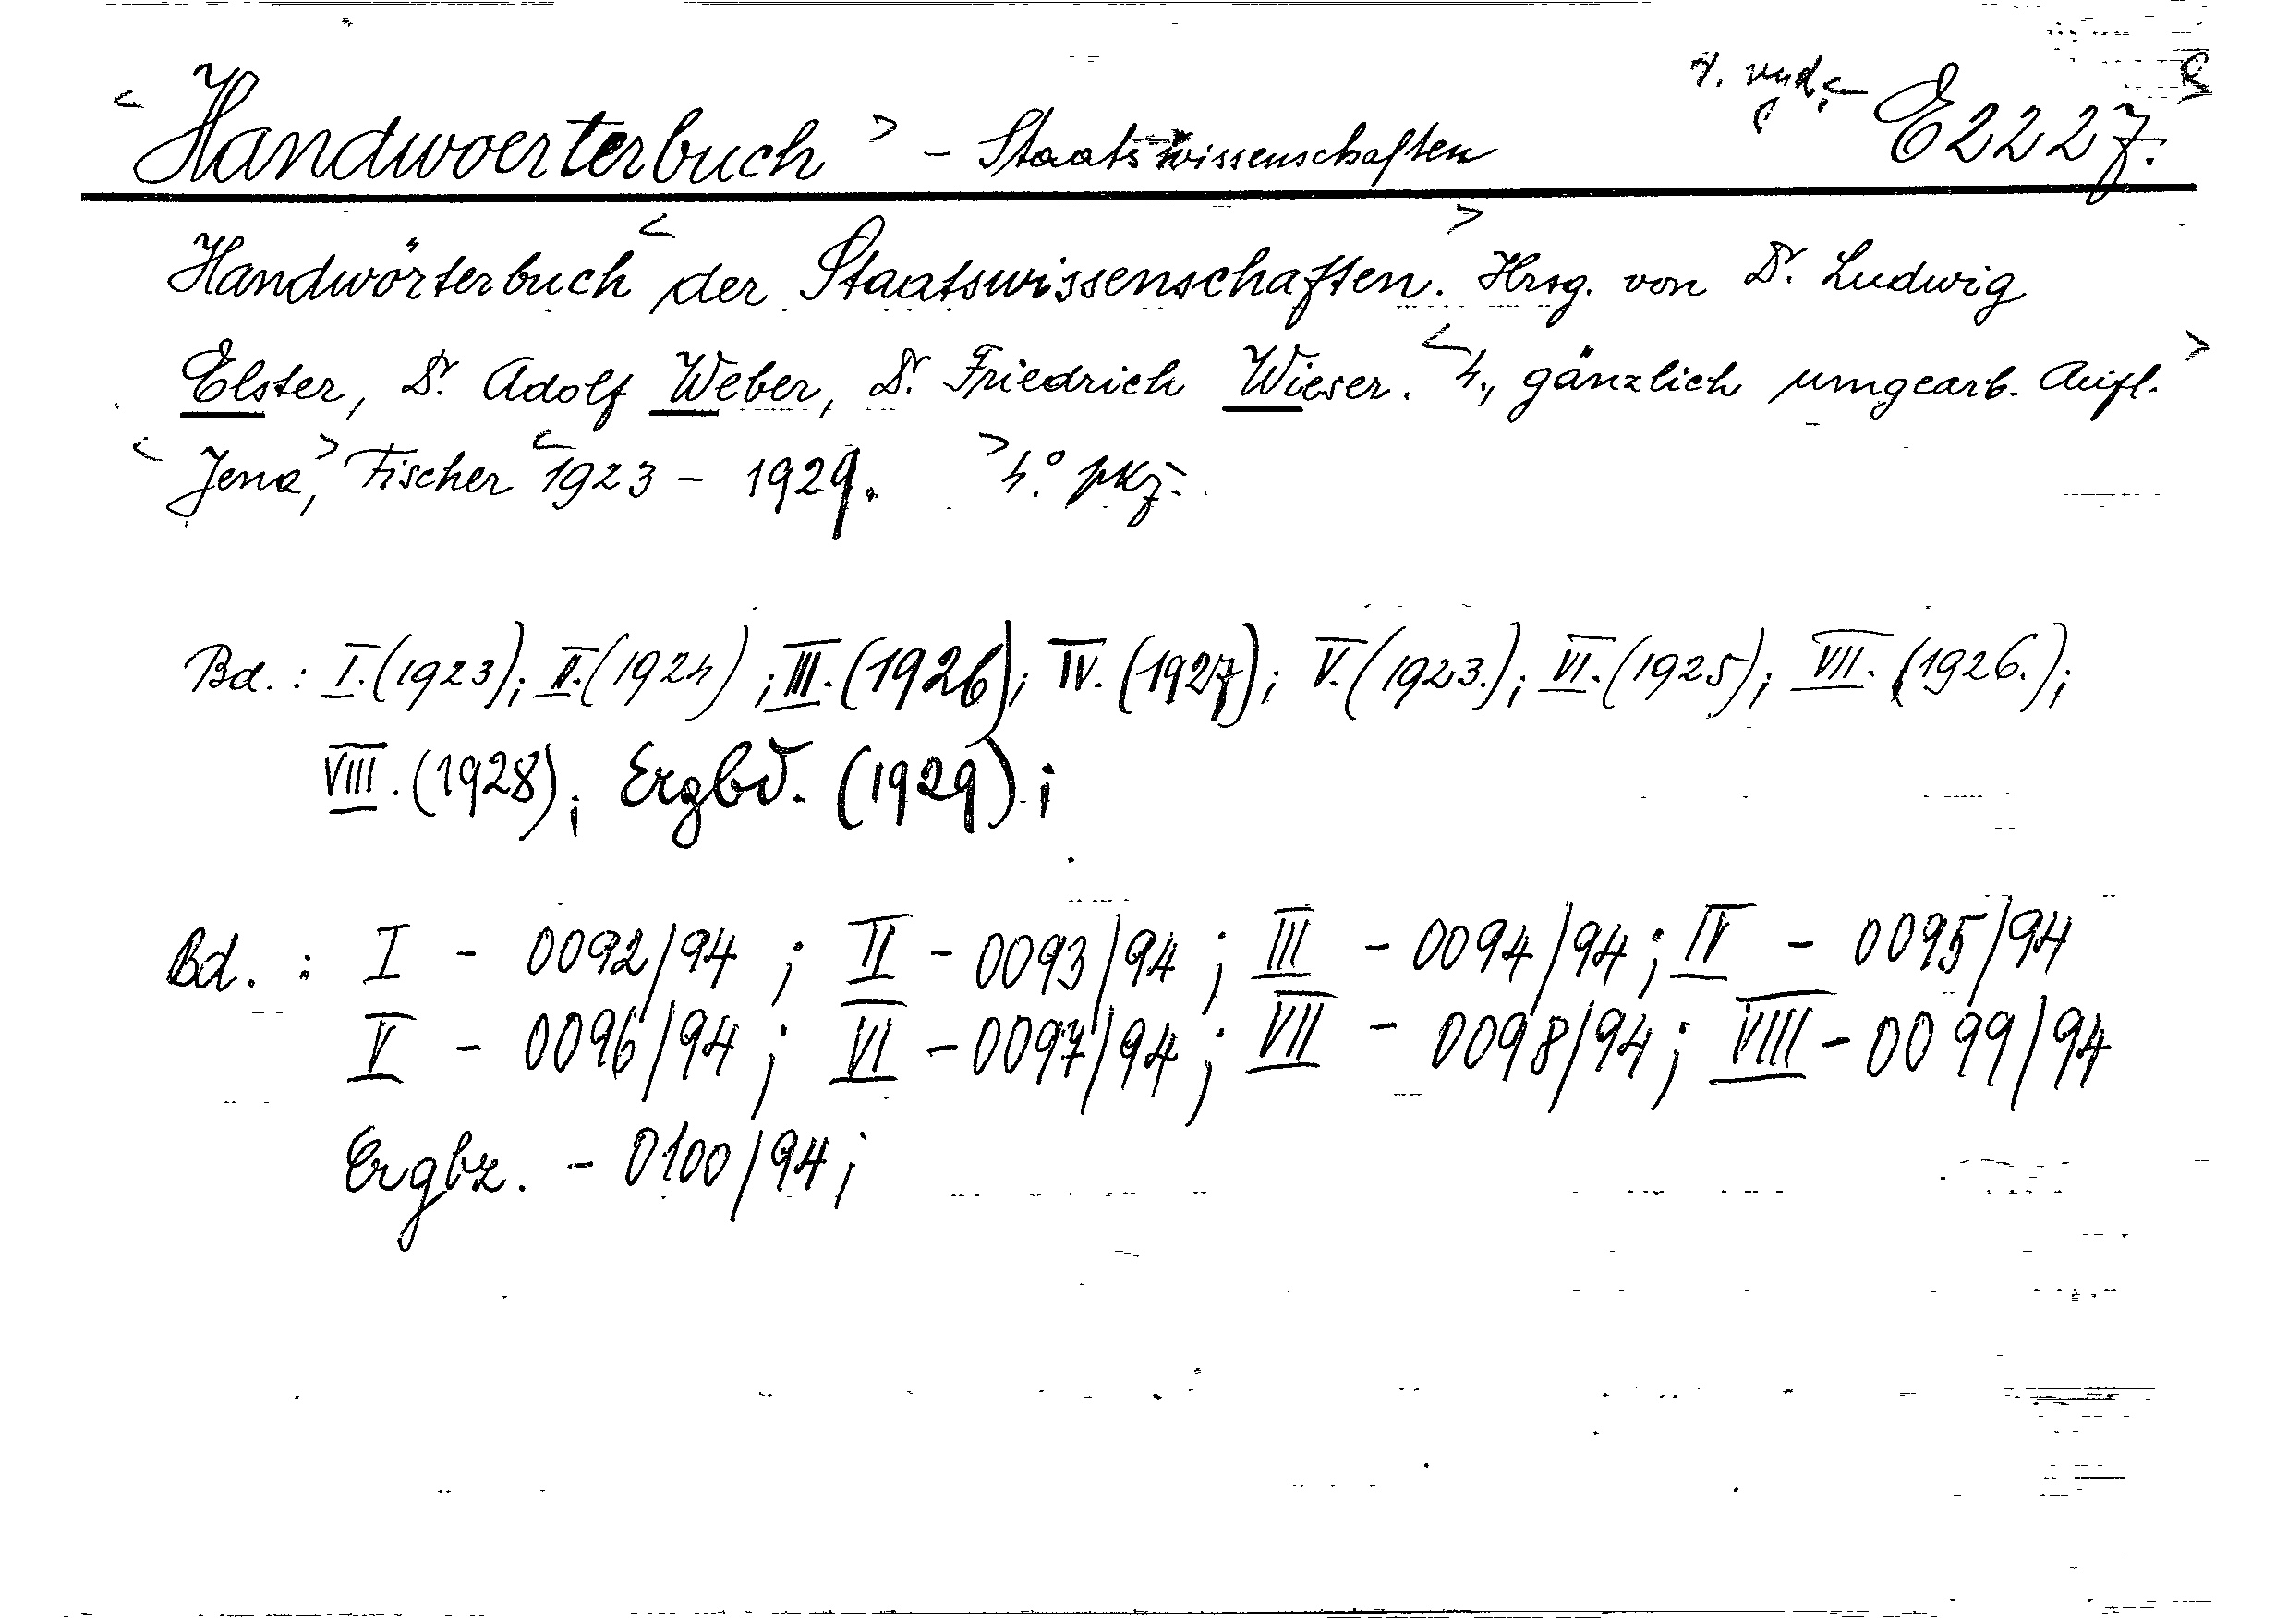 < Handwoerterbuch > - Staatswissenschaften vyd. < E2227.
Handwörterbuch < der Staatswissenschaften. > Hrsg. von Dr. Ludwig
Elster, Dr. Adolf Weber, Dr. Friedrich Wieser. < 4., gänzlich umgearb. Aufl. >
< Jena, > Fischer < 1923 - 1929. > 4°. pkž.
Bd. : I. (1923); II. (1924) ; III. (1926); IV. (1927); V. (1923.); VI. (1925); VII. (1926.);
VIII. (1928); Ergbd. (1929) ;
Bd. : I - 0092/94 ; II - 0093/94 ; III - 0094/94 ; IV - 0095/94
V - 0096/94 ; VI - 0097/94 ; VII - 0098/94 ; VIII - 0099/94
Ergbz. - 0100/94 ;